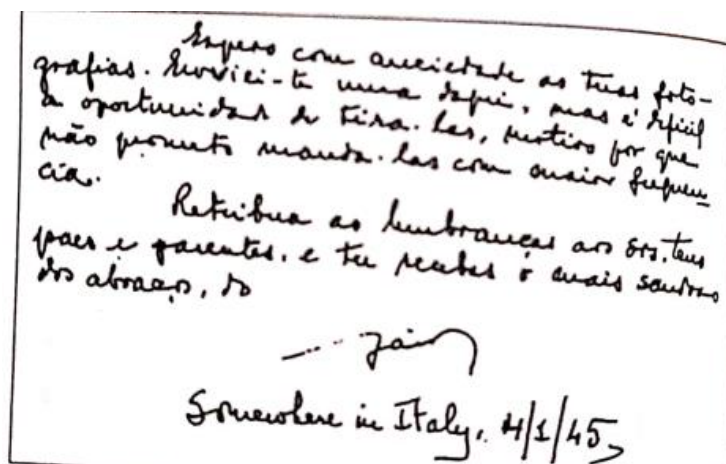 Espero com anciedade as tuas foto-
grafias. Enviei-te uma daqui, mas é dificil
a oportunidade de tira-las, motivo por que
não prometo manda-las com maior frequen-
cia.
Retribua as lembranças aos Srs. teus
paes e parentes, e tu recebas o mais saudoso
dos abraços, do
Jair
Somewhere in Italy, 4/1/45,